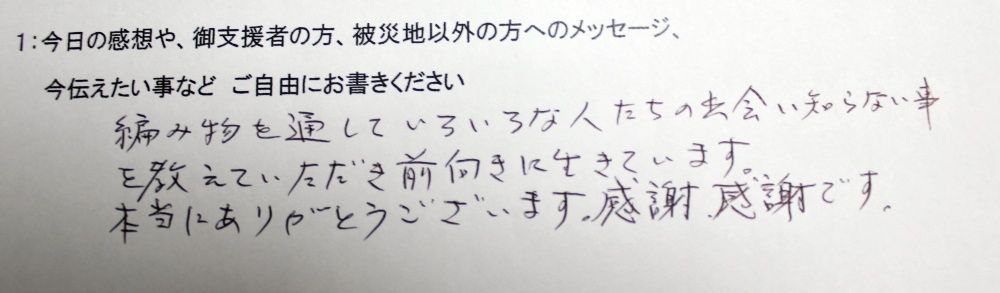 1：今日の感想や、御支援者の方、被災地以外の方へのメッセージ、
今伝えたい事など ご自由にお書きください
編み物を通していろいろな人たちの出会い知らない事
を教えていただき前向きに生きています。
本当にありがとうございます。感謝、感謝です。